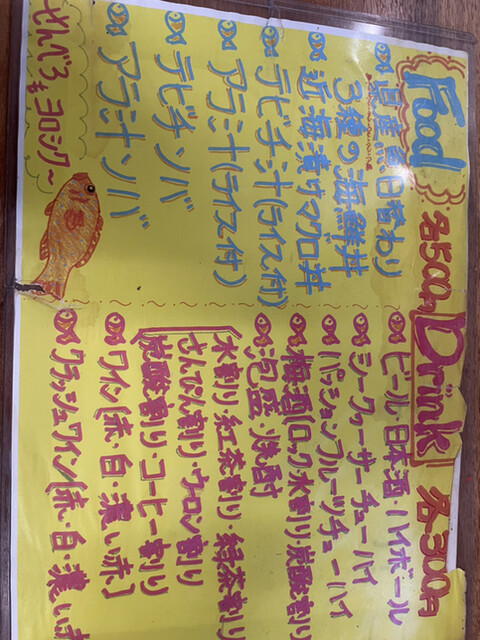 Food 各500円
県産魚日替わり
3種の海鮮丼
近海漬けマグロ丼
テビチ汁(ライス付)
アラ汁(ライス付)
テビチソバ
アラ汁ソバ
せんべろもヨロシク〜
Drink 各300円
ビール・日本酒・ハイボール
シークヮーサーチューハイ
パッションフルーツチューハイ
梅酒(ロック・水割り・炭酸割り
泡盛・焼酎
水割り・紅茶割り・緑茶割り
さんぴん割り・ウーロン割り
炭酸割り・コーヒー割り
ワイン(赤・白・濃い赤)
クラッシュワイン(赤・白・濃い赤